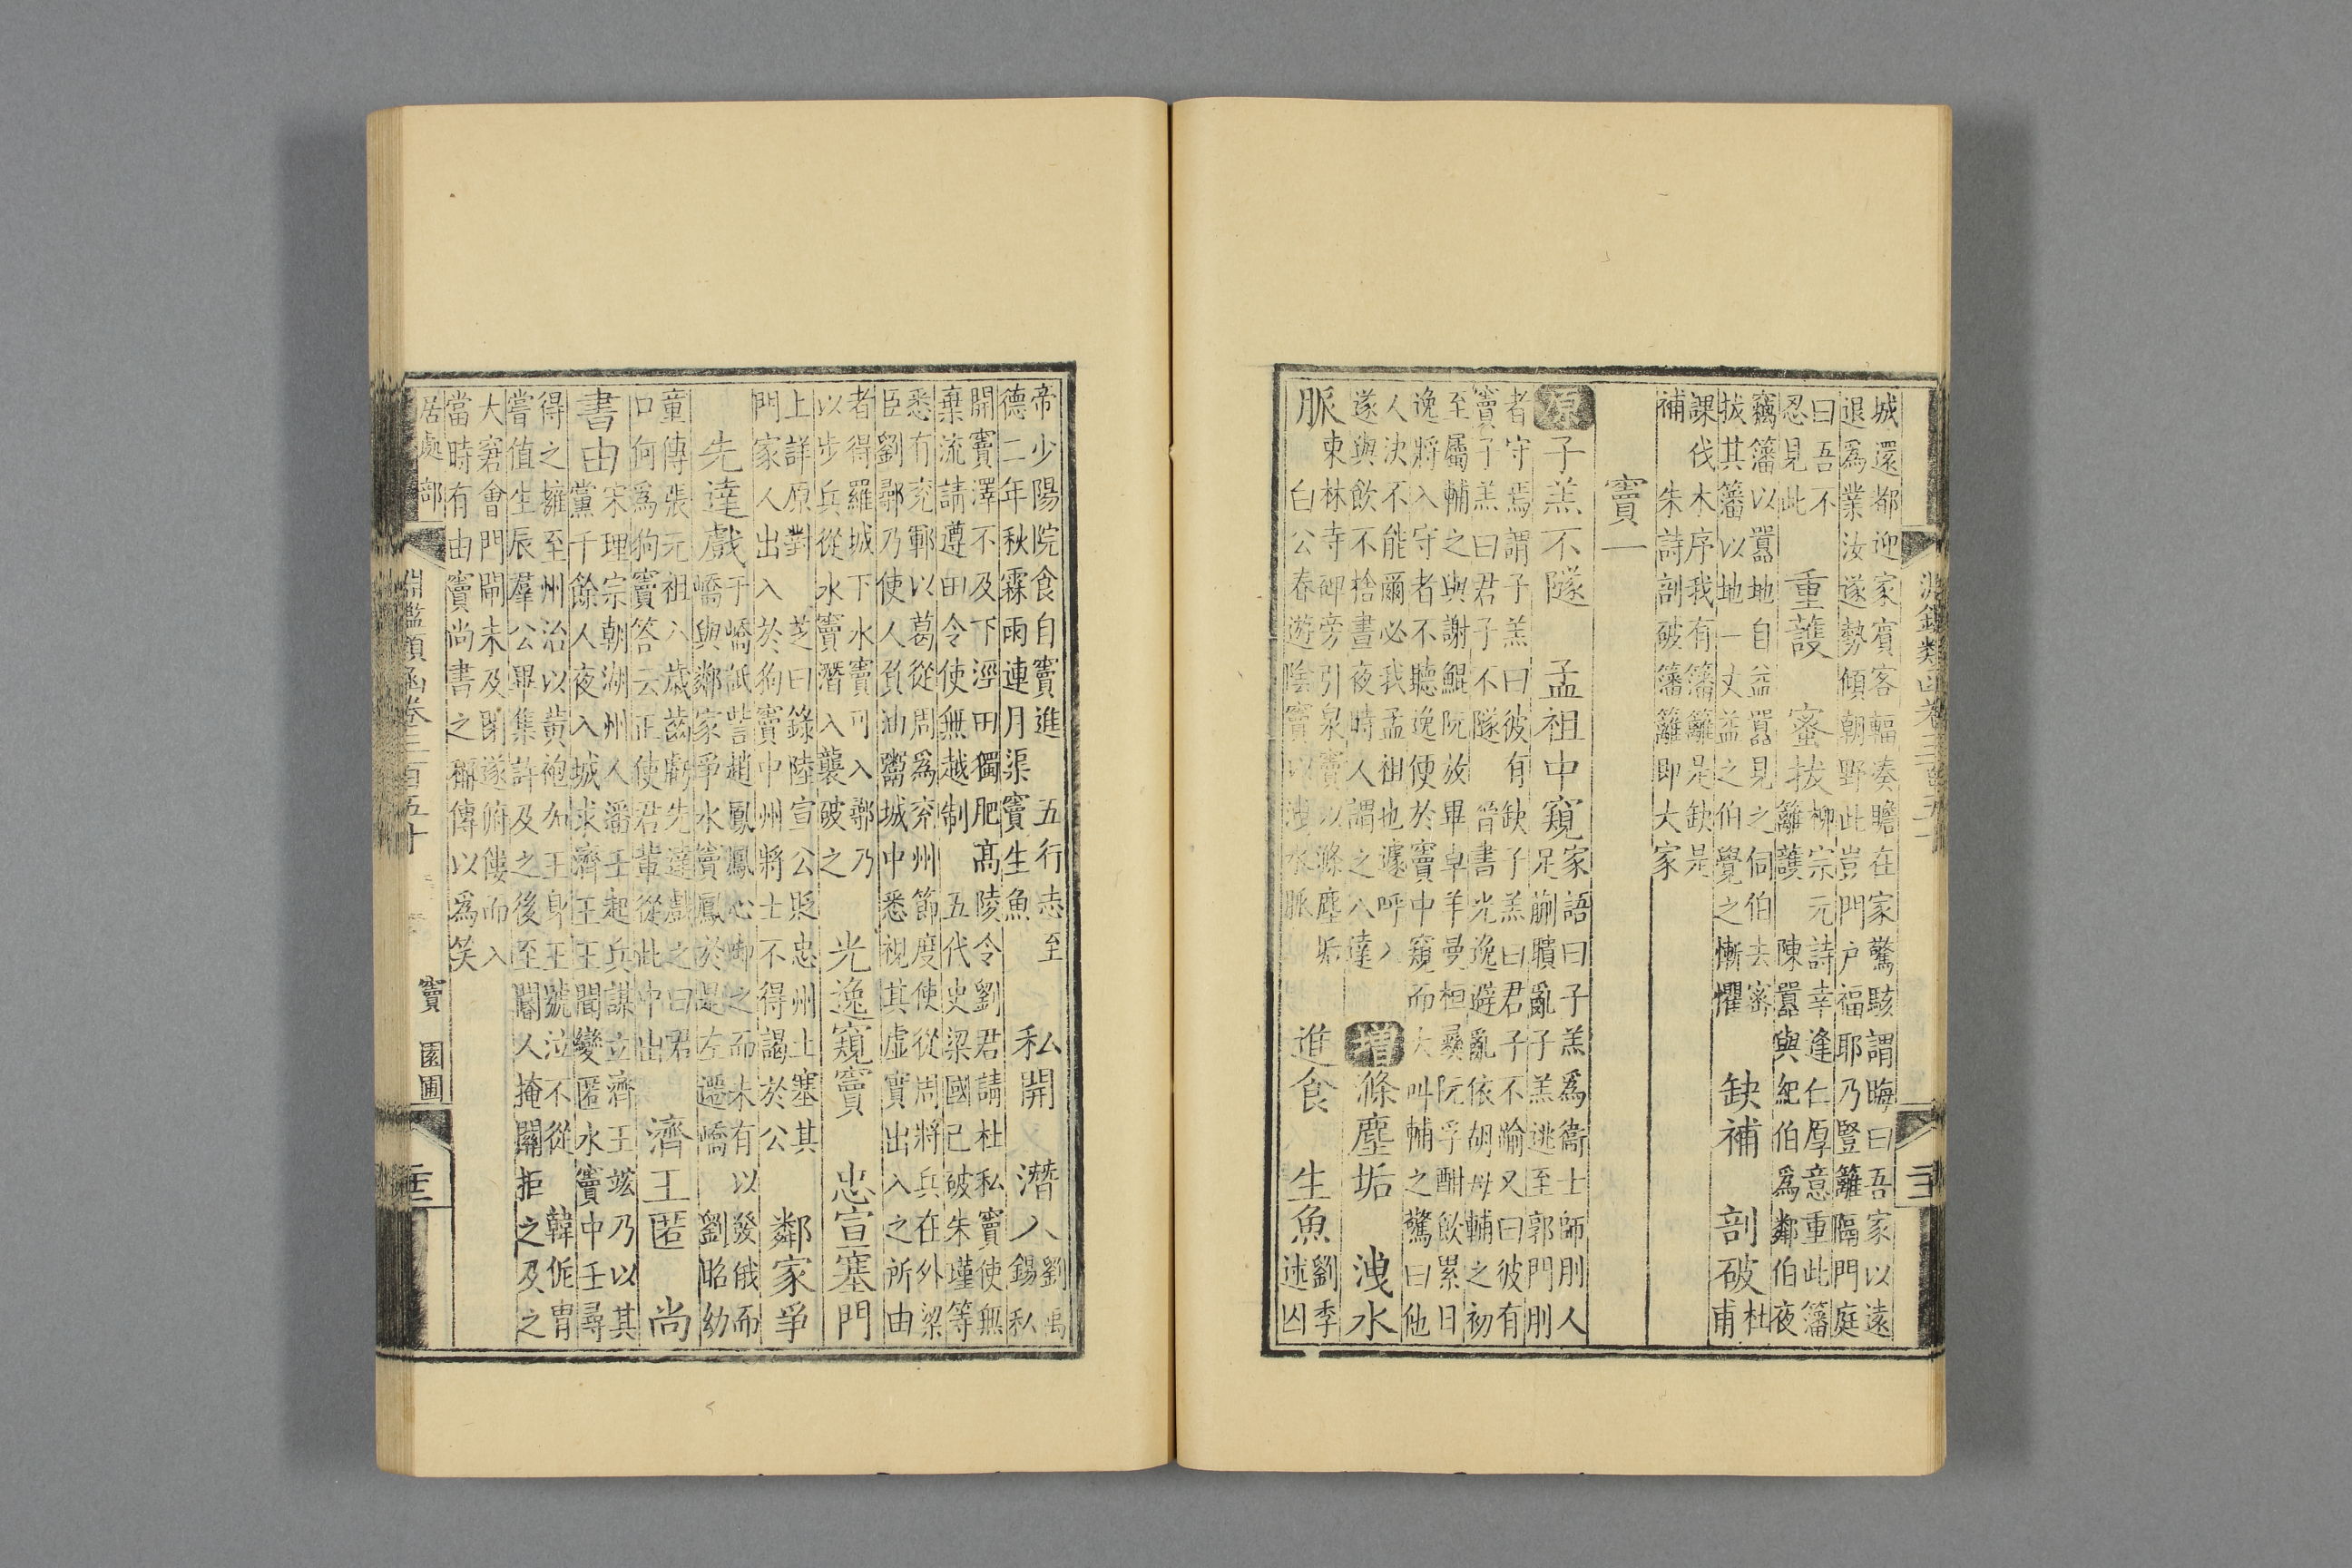 淵鑑類函卷三百五十
城還都迎家賓客輻湊瞻在家驚駭謂晦曰吾家以遠
退為業汝遂勢傾朝野此豈門户福耶乃豎籬隔門庭
曰吾不
忍見此
重䕶　蜜拔
柳宗元詩幸逢仁厚意重此藩
籬䕶　陳囂與紀伯為鄰伯夜
竊藩以囂地自益囂見之伺伯去密
拔其藩以地一丈益之伯覺之慚懼
缺補　剖破
杜
甫
課伐木序我有藩籬是缺是
補　朱詩剖破藩籬即大家
竇一
原　子羔不隧　孟祖中窺
家語曰子羔為衞士師刖人
足蒯聵亂子羔逃至郭門刖
者守焉謂子羔曰彼有缺子羔曰君子不踰又曰彼有
竇子羔曰君子不隧　晉書光逸避亂依胡母輔之初
至屬輔之與謝鯤阮放畢卓羊曼桓彝阮孚酣飲累日
逸將入守者不聽逸使於竇中窺而大叫輔之驚曰他
人決不能爾必我孟祖也遽呼入
遂與飲不捨晝夜時人謂之八達
增　滌塵垢　洩水
脈
東林寺碑旁引泉竇以滌塵垢
白公春遊陰竇以洩水脈
進食　生魚
劉季
述囚
帝少陽院食自竇進　五行志至
德二年秋霖雨連月渠竇生魚
私開　潛入
劉禹
錫私
開竇澤不及下涇田獨肥高陵令劉君請杜私竇使無
棄流請遵田令使無越制　五代史梁國己破朱瑾等
悉有兖鄆以葛從周為兖州節度使從周將兵在外梁
臣劉鄩乃使人負油鬻城中悉視其虛實出入之所由
者得羅城下水竇可入鄩乃
以步兵從水竇潛入襲破之
光逸窺竇　忠宣塞門
上詳原對　芝曰錄陸宣公貶忠州土塞其
門家人出入於狗竇中州將士不得謁於公
鄰家爭
先達戲
于嶠詆訾趙鳳鳳心啣之而未有以發俄而
嶠與鄰家爭水竇鳳於是左遷嶠　劉昭幼
童傳張元祖八歲齒虧先達戲之曰君
口何為狗竇答云正使君輩從此中出
濟王匿　尚
書由
宋理宗朝湖州人潘壬起兵謀立濟王竑乃以其
黨千餘人夜入城求濟王王聞變匿水竇中壬尋
得之擁至州治以黄袍加王身王號泣不從　韓侂冑
嘗值生辰羣公畢集許及之後至閽人掩關拒之及之
大窘會門閘未及閉遂俯僂而入
當時有由竇尚書之稱傳以為笑
居處部
淵鑑類函卷三百五十
竇　園圃